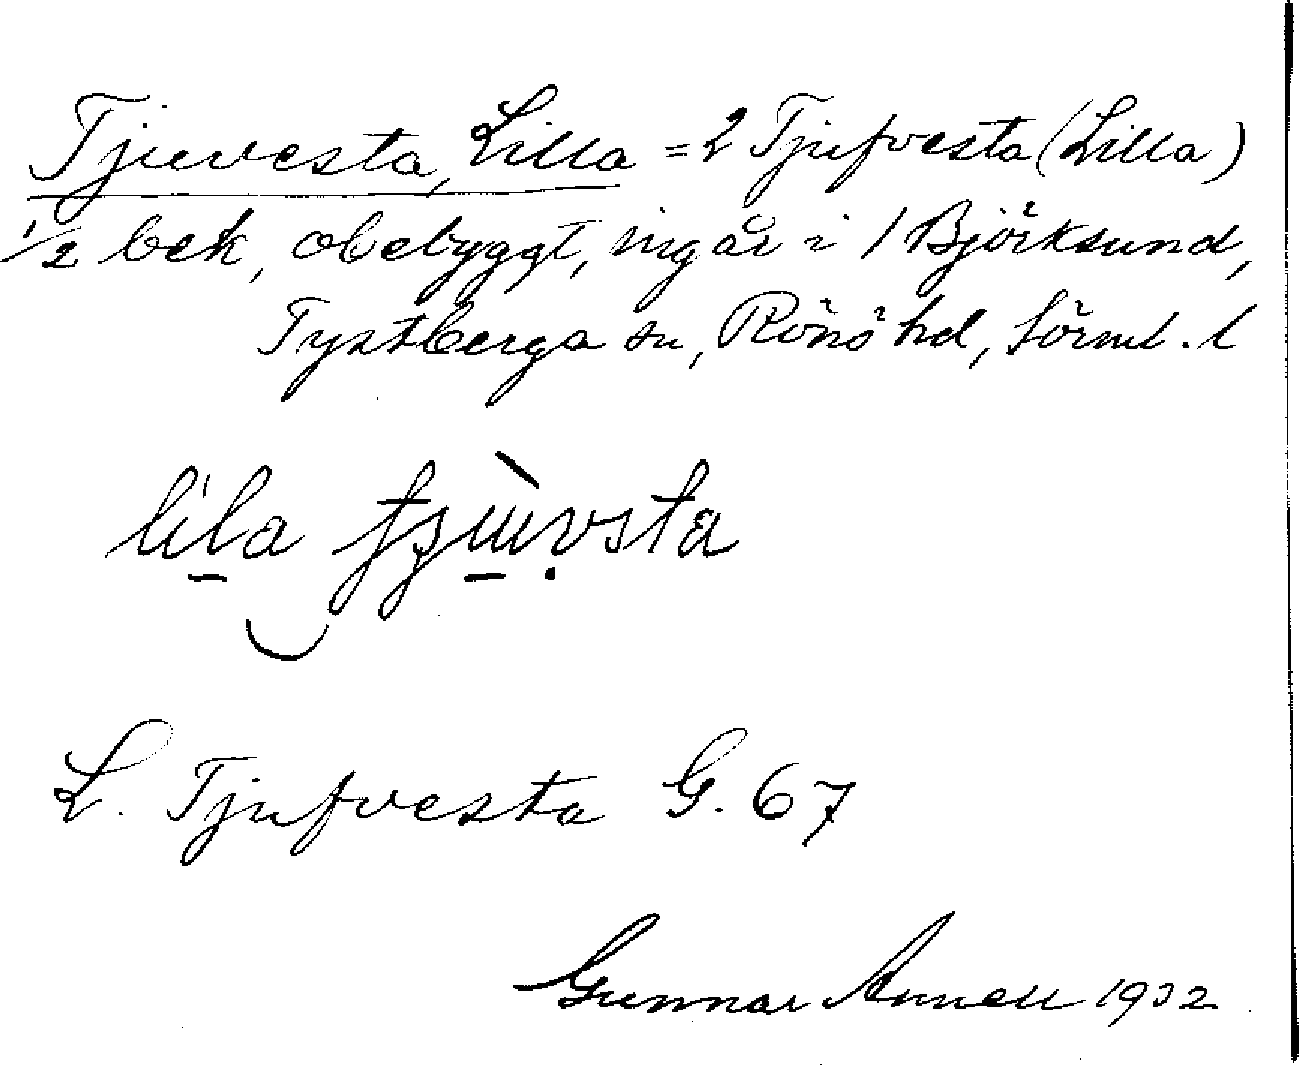 Tjuvesta, Lilla = 2 Tjufvesta (Lilla)
1/2 bek, obebyggt, ingår i 1 Björksund,
Tystberga sn, Rönö hd, Sörml. l
lila tʒùvsta
L. Tjufvesta G. 67
Gunnar Annell 1932